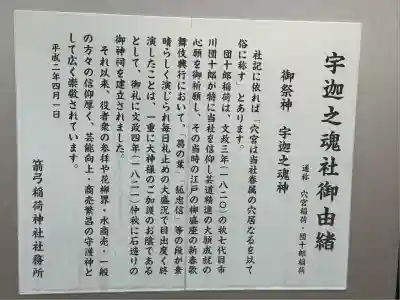 宇迦之魂社御由緒
通称 穴宮稲荷・団十郎稲荷
御祭神 宇迦之魂神
社記に依れば「穴宮は当社眷属の穴居なるを以て
俗に称す」とあります。
団十郎稲荷は、文政三年(一八二〇)の秋七代目市
川団十郎が特に当社を信仰し芸道精進の大願成就の
心願を御祈願し、その当時の江戸の柳盛座の新春歌
舞伎興行において、「葛の葉」「狐忠信」等の段が素
晴らしく演じられ毎日札止めの大盛況で目出度く終
演したことは、一重に大神様のご加護のお陰である
として、御礼に文政四年(一八二一)仲秋に石造りの
御神祠を建立されました。
それ以来、役者衆の参拝や花柳界・水商売・一般
の方々の信仰厚く、芸能向上・商売繁昌の守護神と
して広く崇敬されています。
平成二年四月一日
箭弓稲荷神社社務所